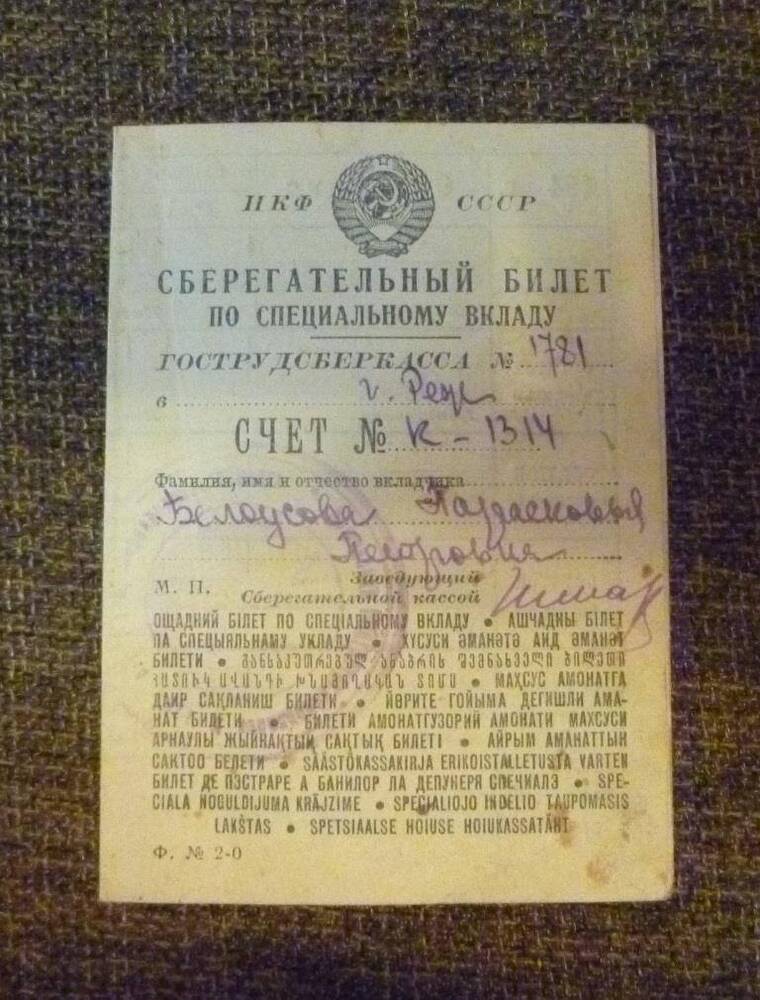 НКФ СССР
СБЕРЕГАТЕЛЬНЫЙ БИЛЕТ
ПО СПЕЦИАЛЬНОМУ ВКЛАДУ
ГОСТРУДСБЕРКАССА № 1781
в г. Реж
СЧЕТ № К – 1314
Фамилия, имя и отчество вкладчика
Белоусова Парасковья
Петровна
Заведующий
М. П. Сберегательной кассой
ОЩАДНИЙ БІЛЕТ ПО СПЕЦІАЛЬНОМУ ВКЛАДУ • АШЧАДНЫ БІЛЕТ
ПА СПЕЦЫЯЛЬНАМУ УКЛАДУ • ХҮСУСИ ӘМАНӘТӘ АИД ӘМАНӘТ
БИЛЕТИ • ᲒᲐᲜᲡᲐᲙᲣᲗᲠᲔᲑᲣᲚ ᲐᲜᲐᲑᲠᲘᲡ ᲨᲔᲛᲜᲐᲮᲕᲔᲚᲘ ᲑᲘᲚᲔᲗᲘ
ՀԱՏՈՒԿ ԱՎԱՆԴԻ ԽՆԱՅՈՂԱԿԱՆ ՏՈՄՍ • МАХСУС АМОНАТГА
ДАИР САҚЛАНИШ БИЛЕТИ • ЙӨРИТЕ ГОЙЫМА ДЕГИШЛИ АМА-
НАТ БИЛЕТИ • БИЛЕТИ АМОНАТГУЗОРИЙ АМОНАТИ МАХСУСИ
АРНАУЛЫ ЖЫЙНАҚТЫҢ САҚТЫҚ БИЛЕТІ • АЙРЫМ АМАНАТТЫН
САКТОО БЕЛЕТИ • SÄÄSTÖKASSAKIRJA ERIKOISTALLETUSTA VARTEN
БИЛЕТ ДЕ ПЭСТРАРЕ А БАНИЛОР ЛА ДЕПУНЕРЯ СПЕЧИАЛЭ • SPE-
CIALA NOGULDIJUMA KRĀJZIME • SPECIALIOJO INDELIO TAUPOMASIS
LAKŠTAS • SPETSIAALSE HOIUSE HOIUKASSATÄHT
Ф. № 2-0